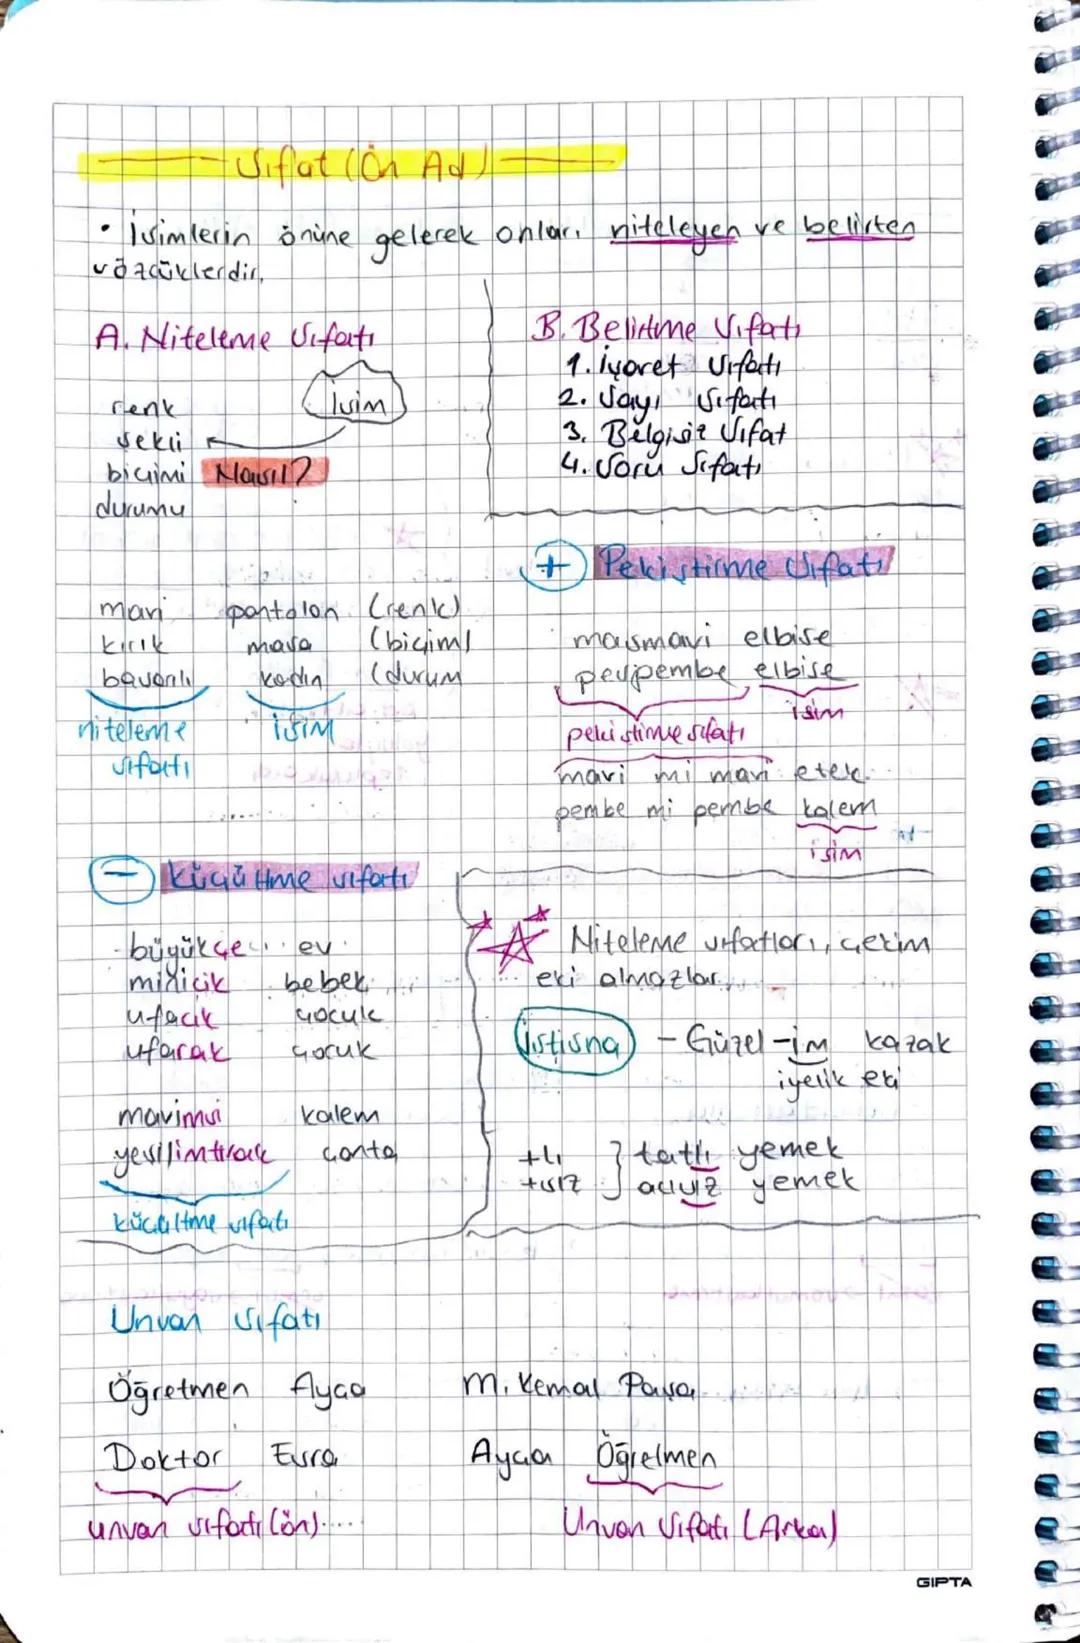 Sıfat (Ön Ad)
• İsimlerin önüne gelerek onları niteleyen ve belirten
sözcüklerdir.
A. Niteleme Sıfatı
İsim
renk
şekli
biçimi Nasıl?
durumu
B. Belirtme Sıfatı
1. İşaret Sıfatı
2. Sayı Sıfatı
3. Belgisiz Sıfat
4. Soru Sıfatı
mavi pantolon (renk)
kırık masa (biçim)
başarılı kadın (durum
niteleme isim
sıfatı
+ Pekiştirme Sıfatı
masmavi elbise
pespembe elbise
isim
pekiştirme sıfatı
mavi mi mavi etek
pembe mi pembe kalem
isim
- küçültme sıfatı
büyükçe ev
minicik bebek
ufacık çocuk
ufarak çocuk
mavimsi kalem
yeşilimtırak çanta
küçültme sıfatı
Niteleme sıfatları, çekim
eki almazlar.
İstisna - Güzel-im kazak
iyelik eki
+lı } tatlı yemek
+sız acısız yemek
Unvan Sıfatı
Öğretmen Ayça M. Kemal Paşa
Doktor Esra Ayça Öğretmen
unvan sıfatı (ön) Unvan Sıfatı (Arka)
GIPTA